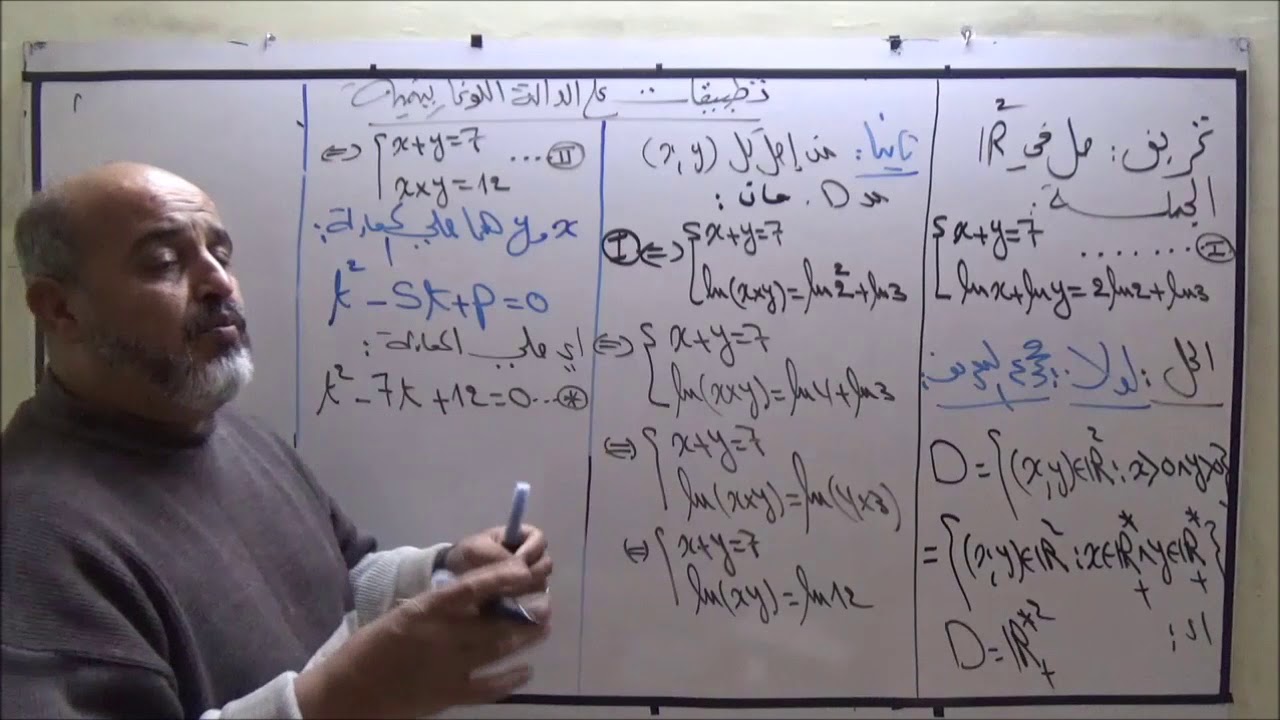 تطبيقات على الدالة اللوغاريتمية
تمرين: حل في IR²
الجملة:
{ x+y=7
lnx+lny=2ln2+ln3 ....... (I)
الحل: أولا:
D={(x,y)∈IR²; x>0∧y>0}
={(x,y)∈IR²; x∈IR*₊∧y∈IR*₊}
D=IR*²₊
ثانيا: من أجل كل (x,y)
من D، فإن:
(I)⇔{ x+y=7
ln(x×y)=ln2²+ln3
⇔{ x+y=7
ln(x×y)=ln4+ln3
⇔{ x+y=7
ln(x×y)=ln(4×3)
⇔{ x+y=7
ln(xy)=ln12
⇔{ x+y=7
x×y=12 ...(II)
x و y هما حلي المعادلة:
t²-St+P=0
أي حلي المعادلة:
t²-7t+12=0...(*)